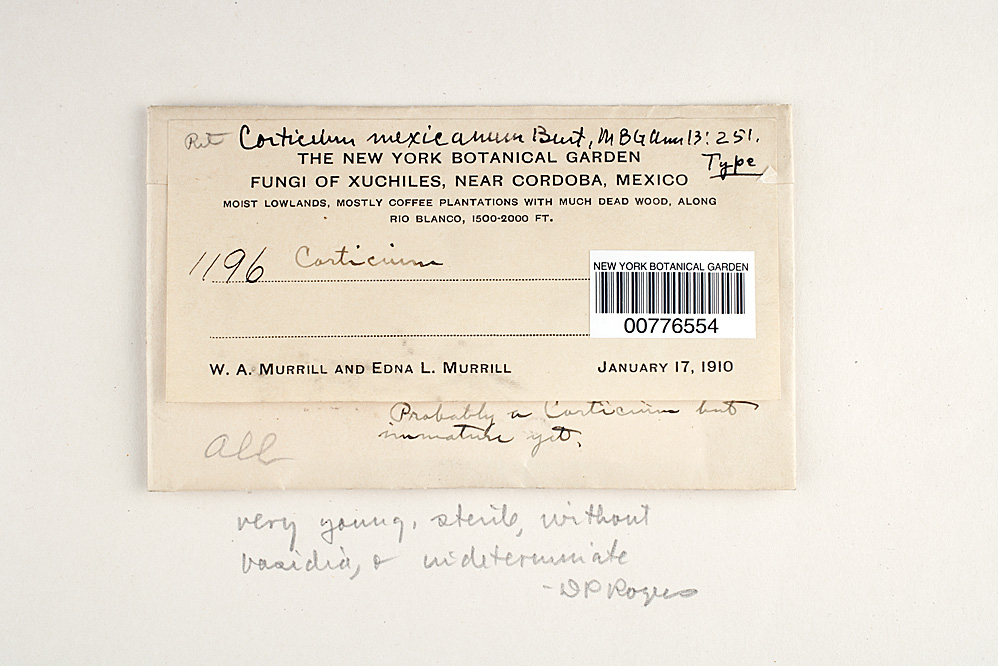 Ret Corticium mexicanum Burt, MBG Ann 13: 251.
Type
THE NEW YORK BOTANICAL GARDEN
FUNGI OF XUCHILES, NEAR CORDOBA, MEXICO
MOIST LOWLANDS, MOSTLY COFFEE PLANTATIONS WITH MUCH DEAD WOOD, ALONG
RIO BLANCO, 1500-2000 FT.
1196 Corticium
NEW YORK BOTANICAL GARDEN
00776554
W. A. MURRILL AND EDNA L. MURRILL JANUARY 17, 1910
Probably a Corticium but
immature yet.
All
very young, sterile, without
basidia, & indeterminate
- D P Rogers